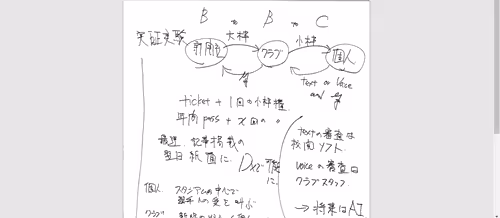 B to B to C
実証実験
大枠 小枠
新聞社 クラブ 個人
text or Voice
and
ticket + 1回の小枠権
年間pass + x回の 〃
最速、記事掲載の
翌日紙面に。DXで可能に。
個人 スタジアムの中心で
選手への愛を叫ぶ
クラブ
textの審査は
校閲ソフト
Voiceの審査は
クラブスタッフ
→ 将来はAI